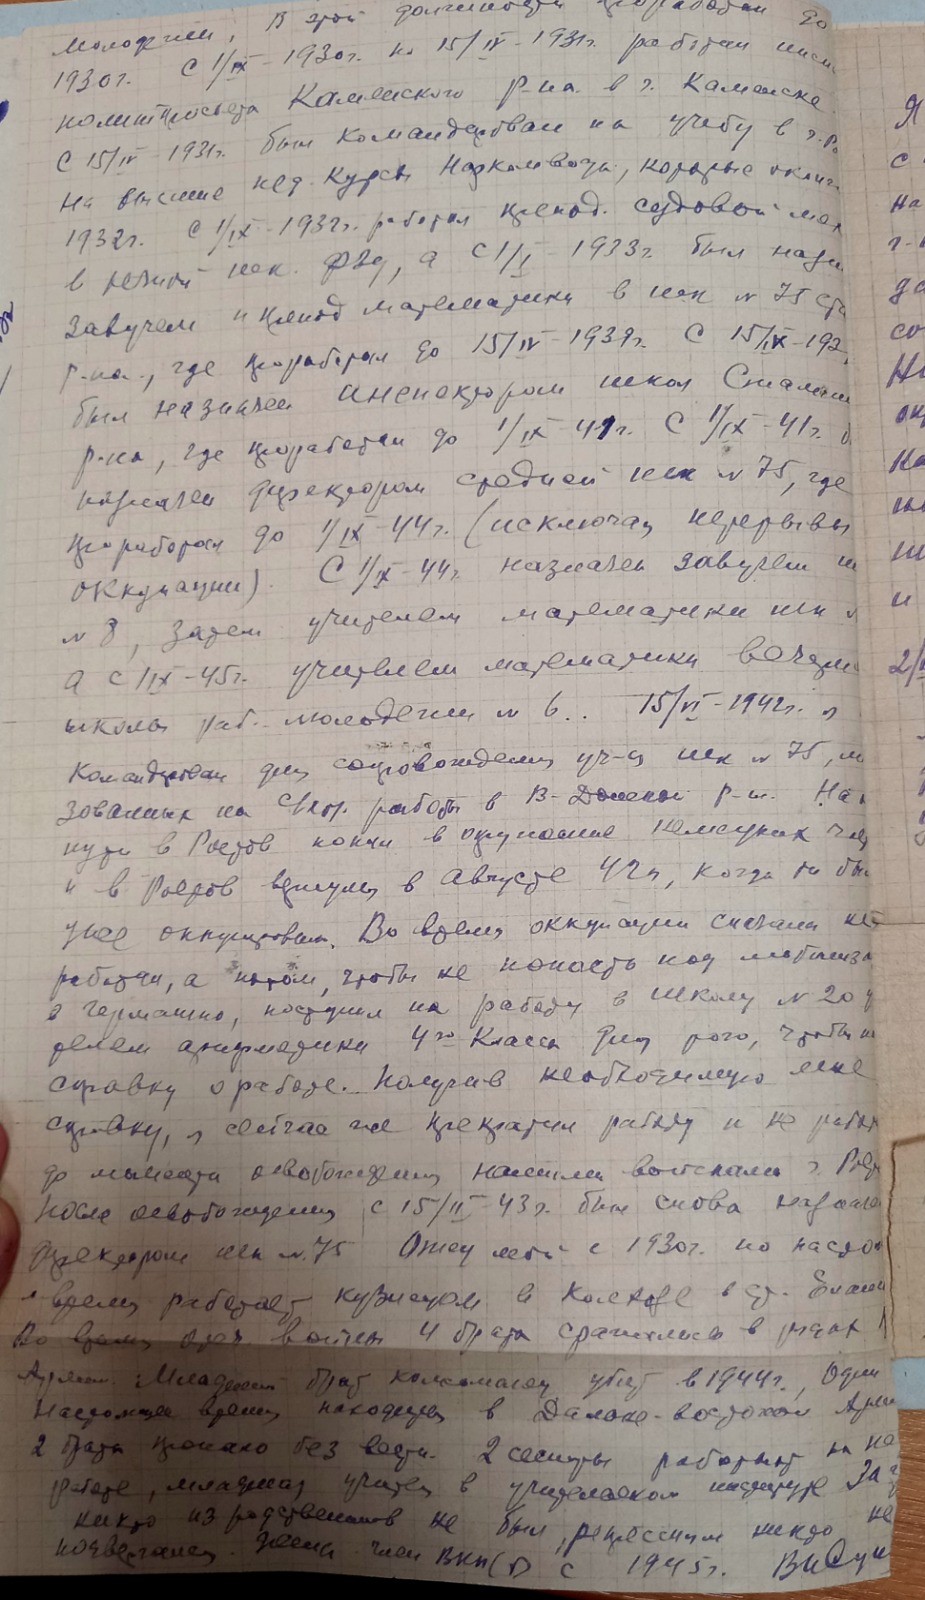 молодежи, В этой должности проработал до
1930г. С 1/IX-1930г. по 15/IV-1931г. работал инсп
политпросвета Каменского р-на в г. Каменске
С 15/IV-1931г. был командирован на учебу в г. Ро
на высшие пед. курсы Наркомвода, которые окончи
1932г. С 1/IX-1932г. работал препод. судовой мех
в речной шк. ФЗУ, а с 1/I-1933г. был назн
завучем и препод математики в шк № 75 Ста
р-на, где проработал до 15/IV-1939г. С 15/IX-193
был назначен инспектором школ Сталинс
р-на, где проработал до 1/IX-41г. С 1/IX-41г. б
назначен директором средней шк № 75, где
проработал до 1/IX-44г. (исключая перерывы
оккупации). С 1/IX-44г. назначен завучем ш
№ 8, затем учителем математики шк №
а с 1/IX-45г. учителем математики вечерн
школы раб. молодежи № 6.. 15/VI-1942г. я
командирован для сопровождения уч-ся шк № 75, мо
зованных на с/хоз. работы в В-Донской р-н. На
пути в Ростов попал в окружение немецких час
и в Ростов вернулся в августе 42г, когда он бы
уже оккупирован. Во время оккупации сначала не
работал, а потом, чтобы не попасть под мобилиза
в Германию, поступил на работу в школу № 20 у
телем арифметики 4го класса для того, чтобы по
справку о работе. Получив необходимую мне
справку, я сейчас же прекратил работу и не работ
до момента освобождения нашими войсками г. Рост
После освобождения с 15/II-43г. был снова назначен
директором шк №.75 Отец мой с 1930г. по настоя
время работает кузнецом в колхозе в ст. Елан
Во время отеч. войны 4 брата сражались в рядах
Армии. Младший брат комсомолец убит в 1944г., один
настоящее время находится в Дальне-восточной Арми
2 брата пропало без вести. 2 сестры работают на пе
работе, младшая учится в учительском институте За г
никто из родственников не был, репрессиям никто не
подвергался. член ВКП(б) с 1945г.